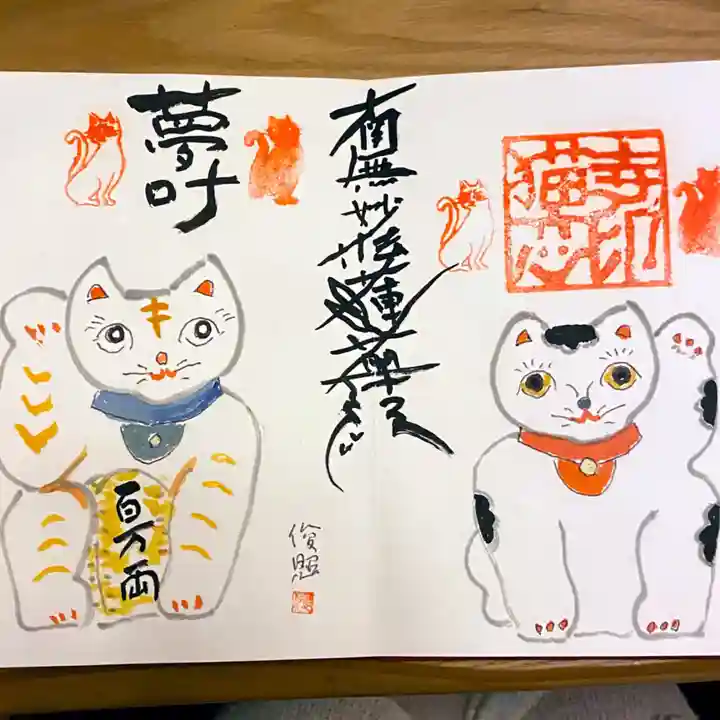 南無妙法蓮華経
俊照
夢叶
百万両